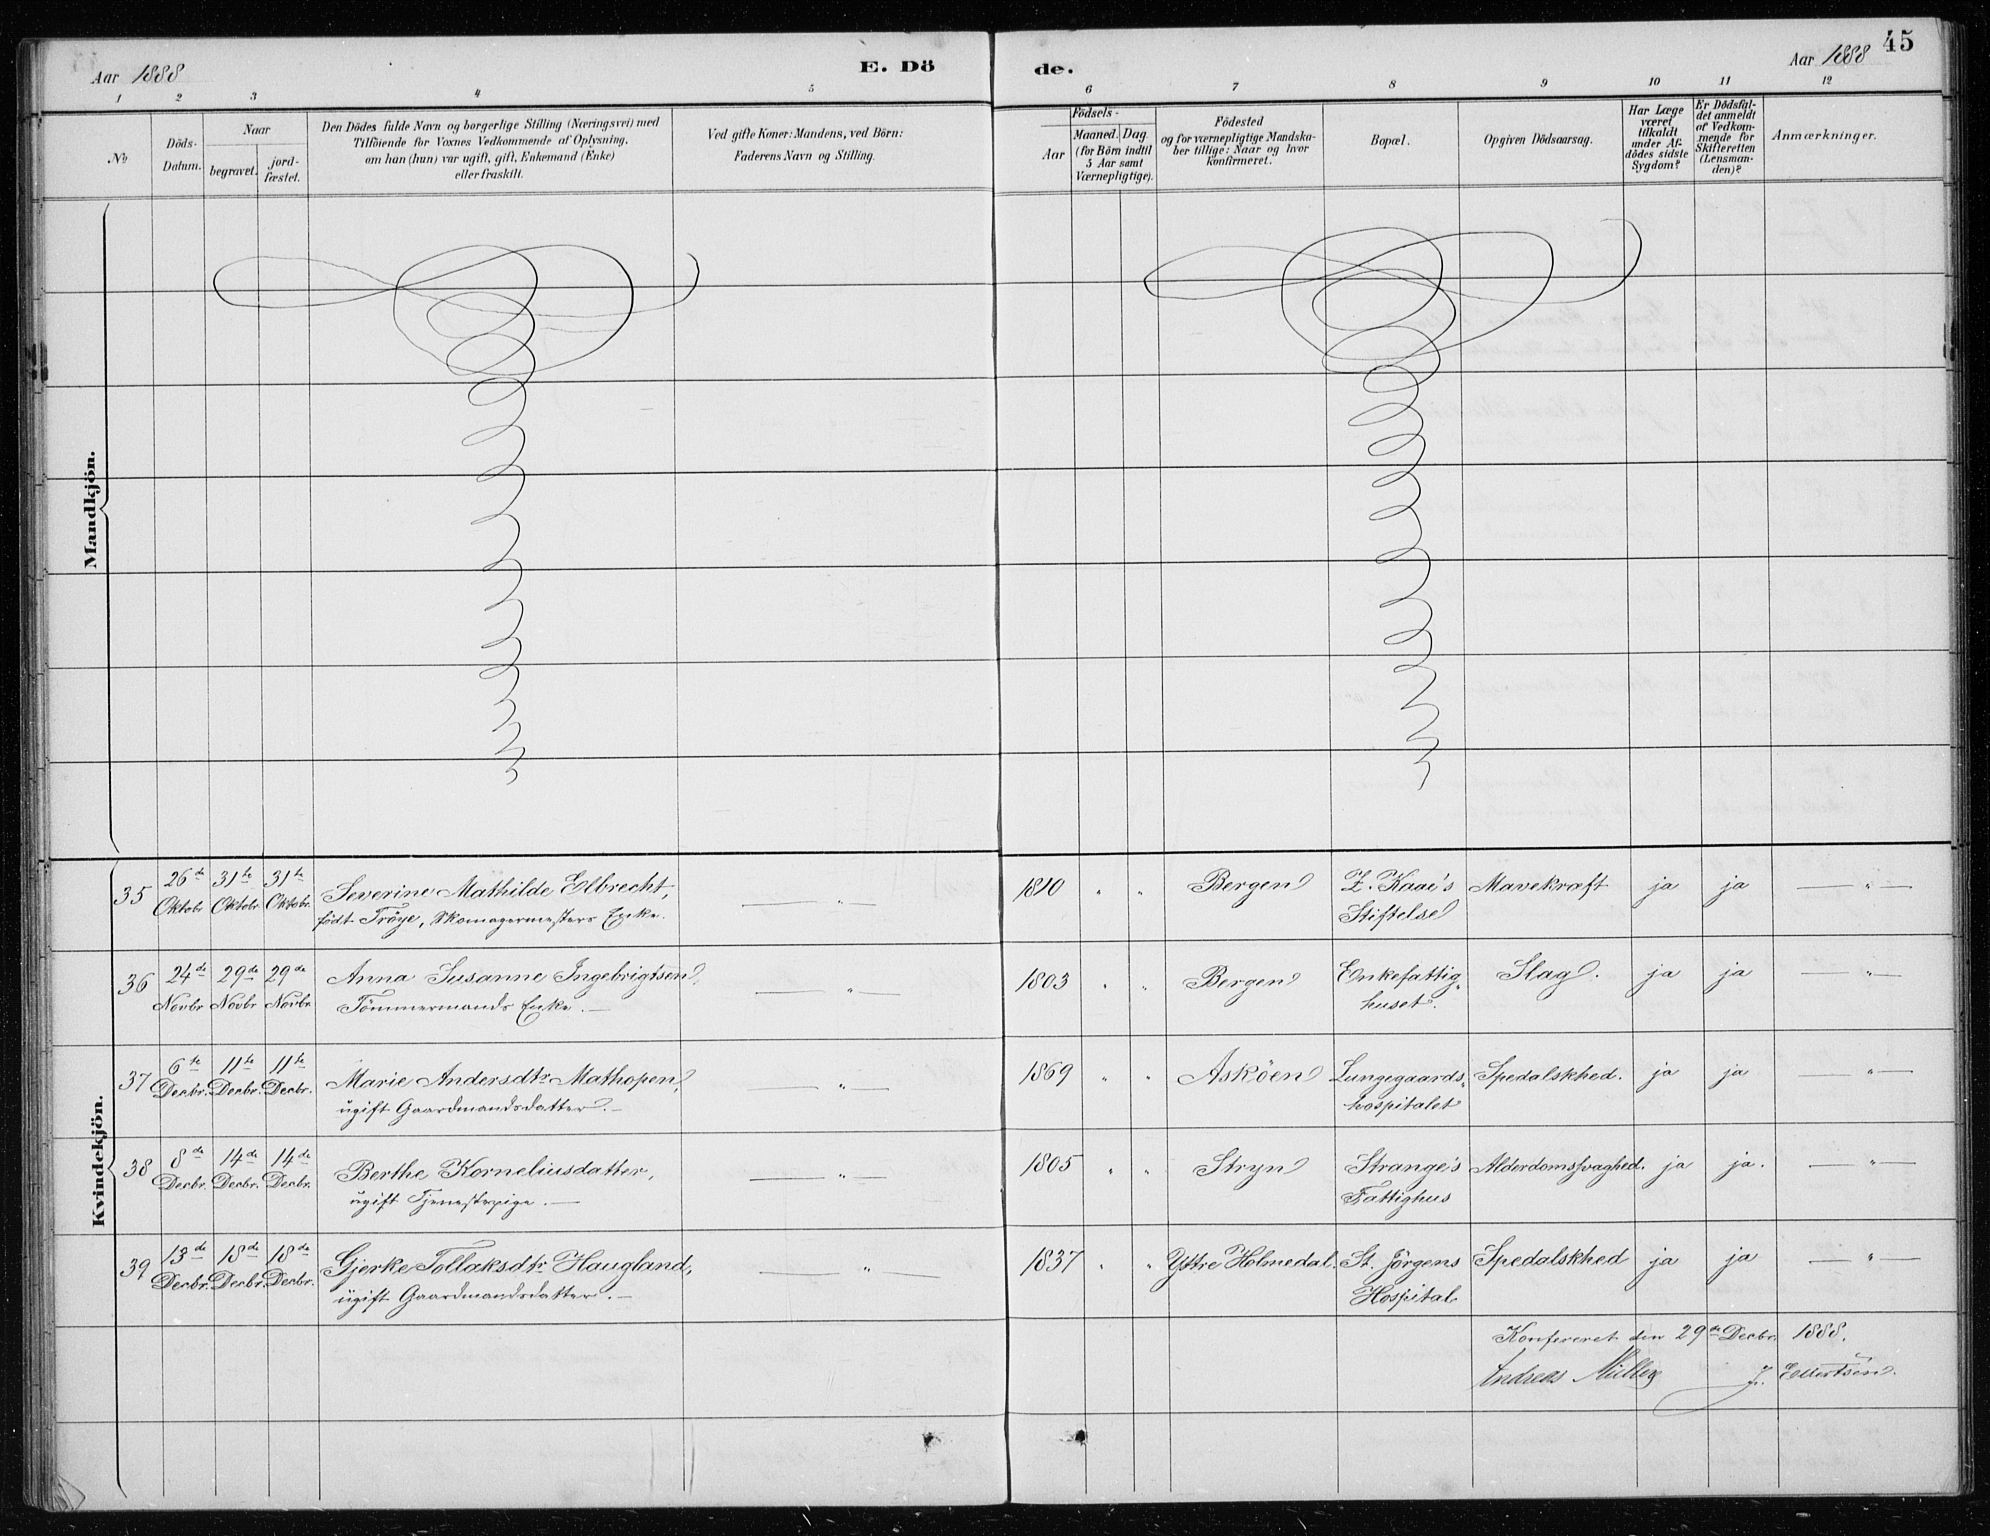 45
Aar 1888
E. Dö
de.
Aar 1888
1 2 3 4 5 6 7 8 9 10 11 12
No
Döds-
Datum.
Naar
begravet.
jord-
fæstet.
Den Dödes fulde Navn og borgerlige Stilling (Næringsvei) med
Tilföiende for Voxnes Vedkommende af Oplysning,
om han (hun) var ugift, gift, Enkemand (Enke)
eller fraskilt.
Ved gifte Koner: Mandens, ved Börn:
Faderens Navn og Stilling.
Födsels-
Aar
Maaned. Dag.
(for Börn indtil
5 Aar samt
Værnepligtige).
Födested
og for værnepligtige Mandska-
ber tillige: Naar og hvor
konfirmeret.
Bopæl.
Opgiven Dödsaarsag.
Har Læge
været
tilkaldt
under Af-
dödes sidste
Sygdom?
Er Dödsfal-
det anmeldt
af Vedkom-
mende for
Skifteretten
(Lensman-
den)?
Anmærkninger.
Mandkjön.
Kvindekjön.
35 26de Oktobr 31te Oktobr 31te Oktobr. Severine Mathilde Elbrecht, — " — 1810 " " Bergen Z. Kaae's Mavekræft ja ja — " —
født Trøye, Skomagermesters Enke. Stiftelse
36 24de Novbr 29de Novbr 29de Novbr. Anna Susanne Ingebrigtsen, — " — 1803 " " Bergen Enkefattig- Slag. ja ja " —
Tömmermands Enke. — huset.
37 6te Decbr. 11te Decbr. 11te Decbr. Marie Andersdtr Mathopen, — " — 1869 " " Asköen Lungegaards- Spedalskhed. ja ja — " —
ugift Gaardmandsdatter. — hospitalet
38 8de Decbr. 14de Decbr. 14de Decbr. Berthe Korneliusdatter, — " — 1805 " " Stryn Strange's Alderdomssvaghed. ja ja. — " —
ugift Tjenestepige. — Fattighus
39 13de Decbr. 18de Decbr. 18de Decbr. Gjerke Tollaksdtr Haugland, — " — 1837 " " Yttre Holmedal. St. Jörgens Spedalskhed ja ja — " —
ugift Gaardmandsdatter. — Hospital
Konfereret den 29de Decbr. 1888.
Andreas Müller J. Ellertsen.